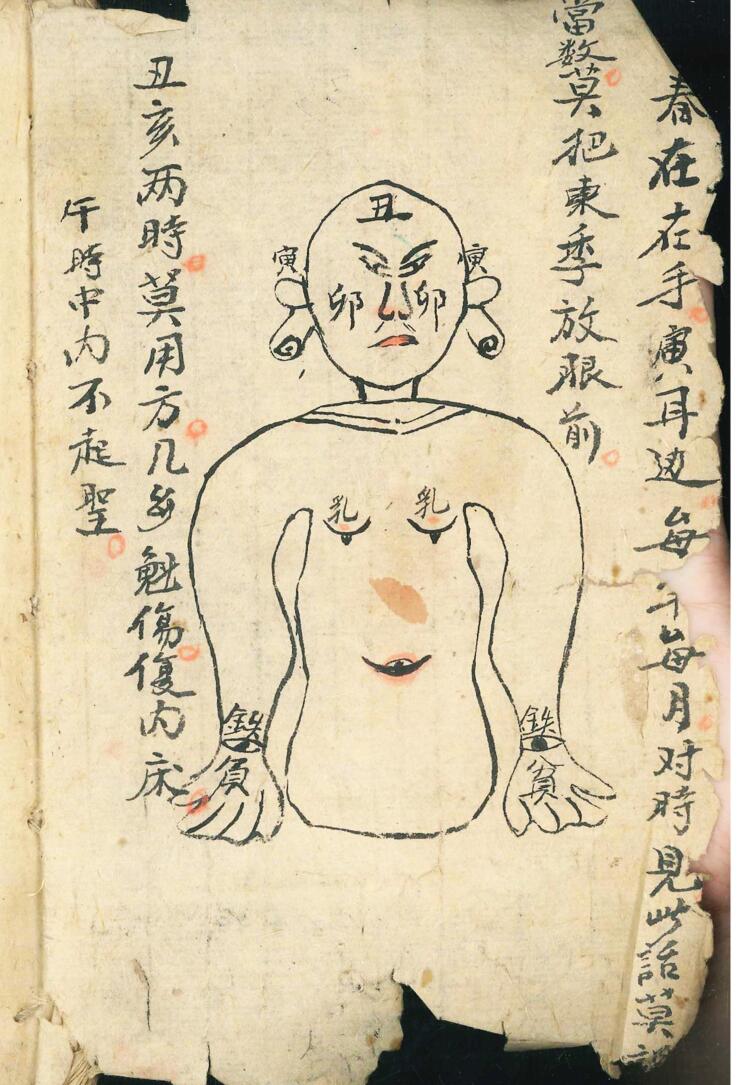 春在在手寅耳边每年每月对時見此話莫
當数莫把東季放眼前
丑
寅
寅
卯
卯
乳
乳
鉄
鉄
貧
貧
丑亥两時莫用方几多魁傷復内床
午時中内不起聖